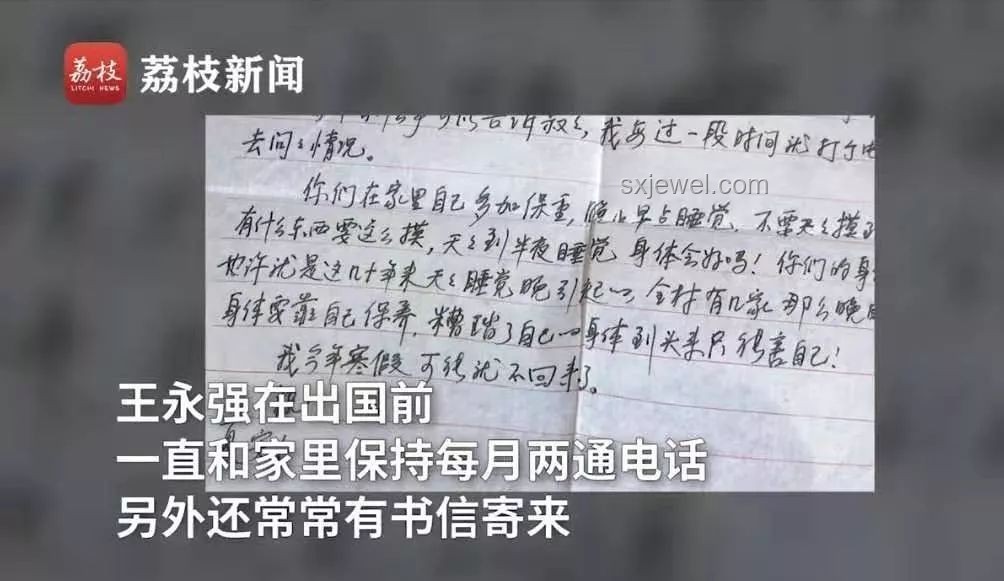 荔枝
LITCHI NEWS
荔枝新闻
可以告诉叔々,我每过一段时间就打个电
去问々情况。
sxjewel.com
你们在家里自己多加保重,晚上早点睡觉,不要天々摸
有什么东西要这么摸,天々到半夜睡觉 身体会好吗!你们的身
也许就是这几十年来天々睡觉晚引起的,全村有几家那么晚
身体要靠自己保养,糟蹋了自己的身体到头来只能害自己!
我今年寒假可能就不回来了。
王永强在出国前
一直和家里保持每月两通电话
另外还常常有书信寄来